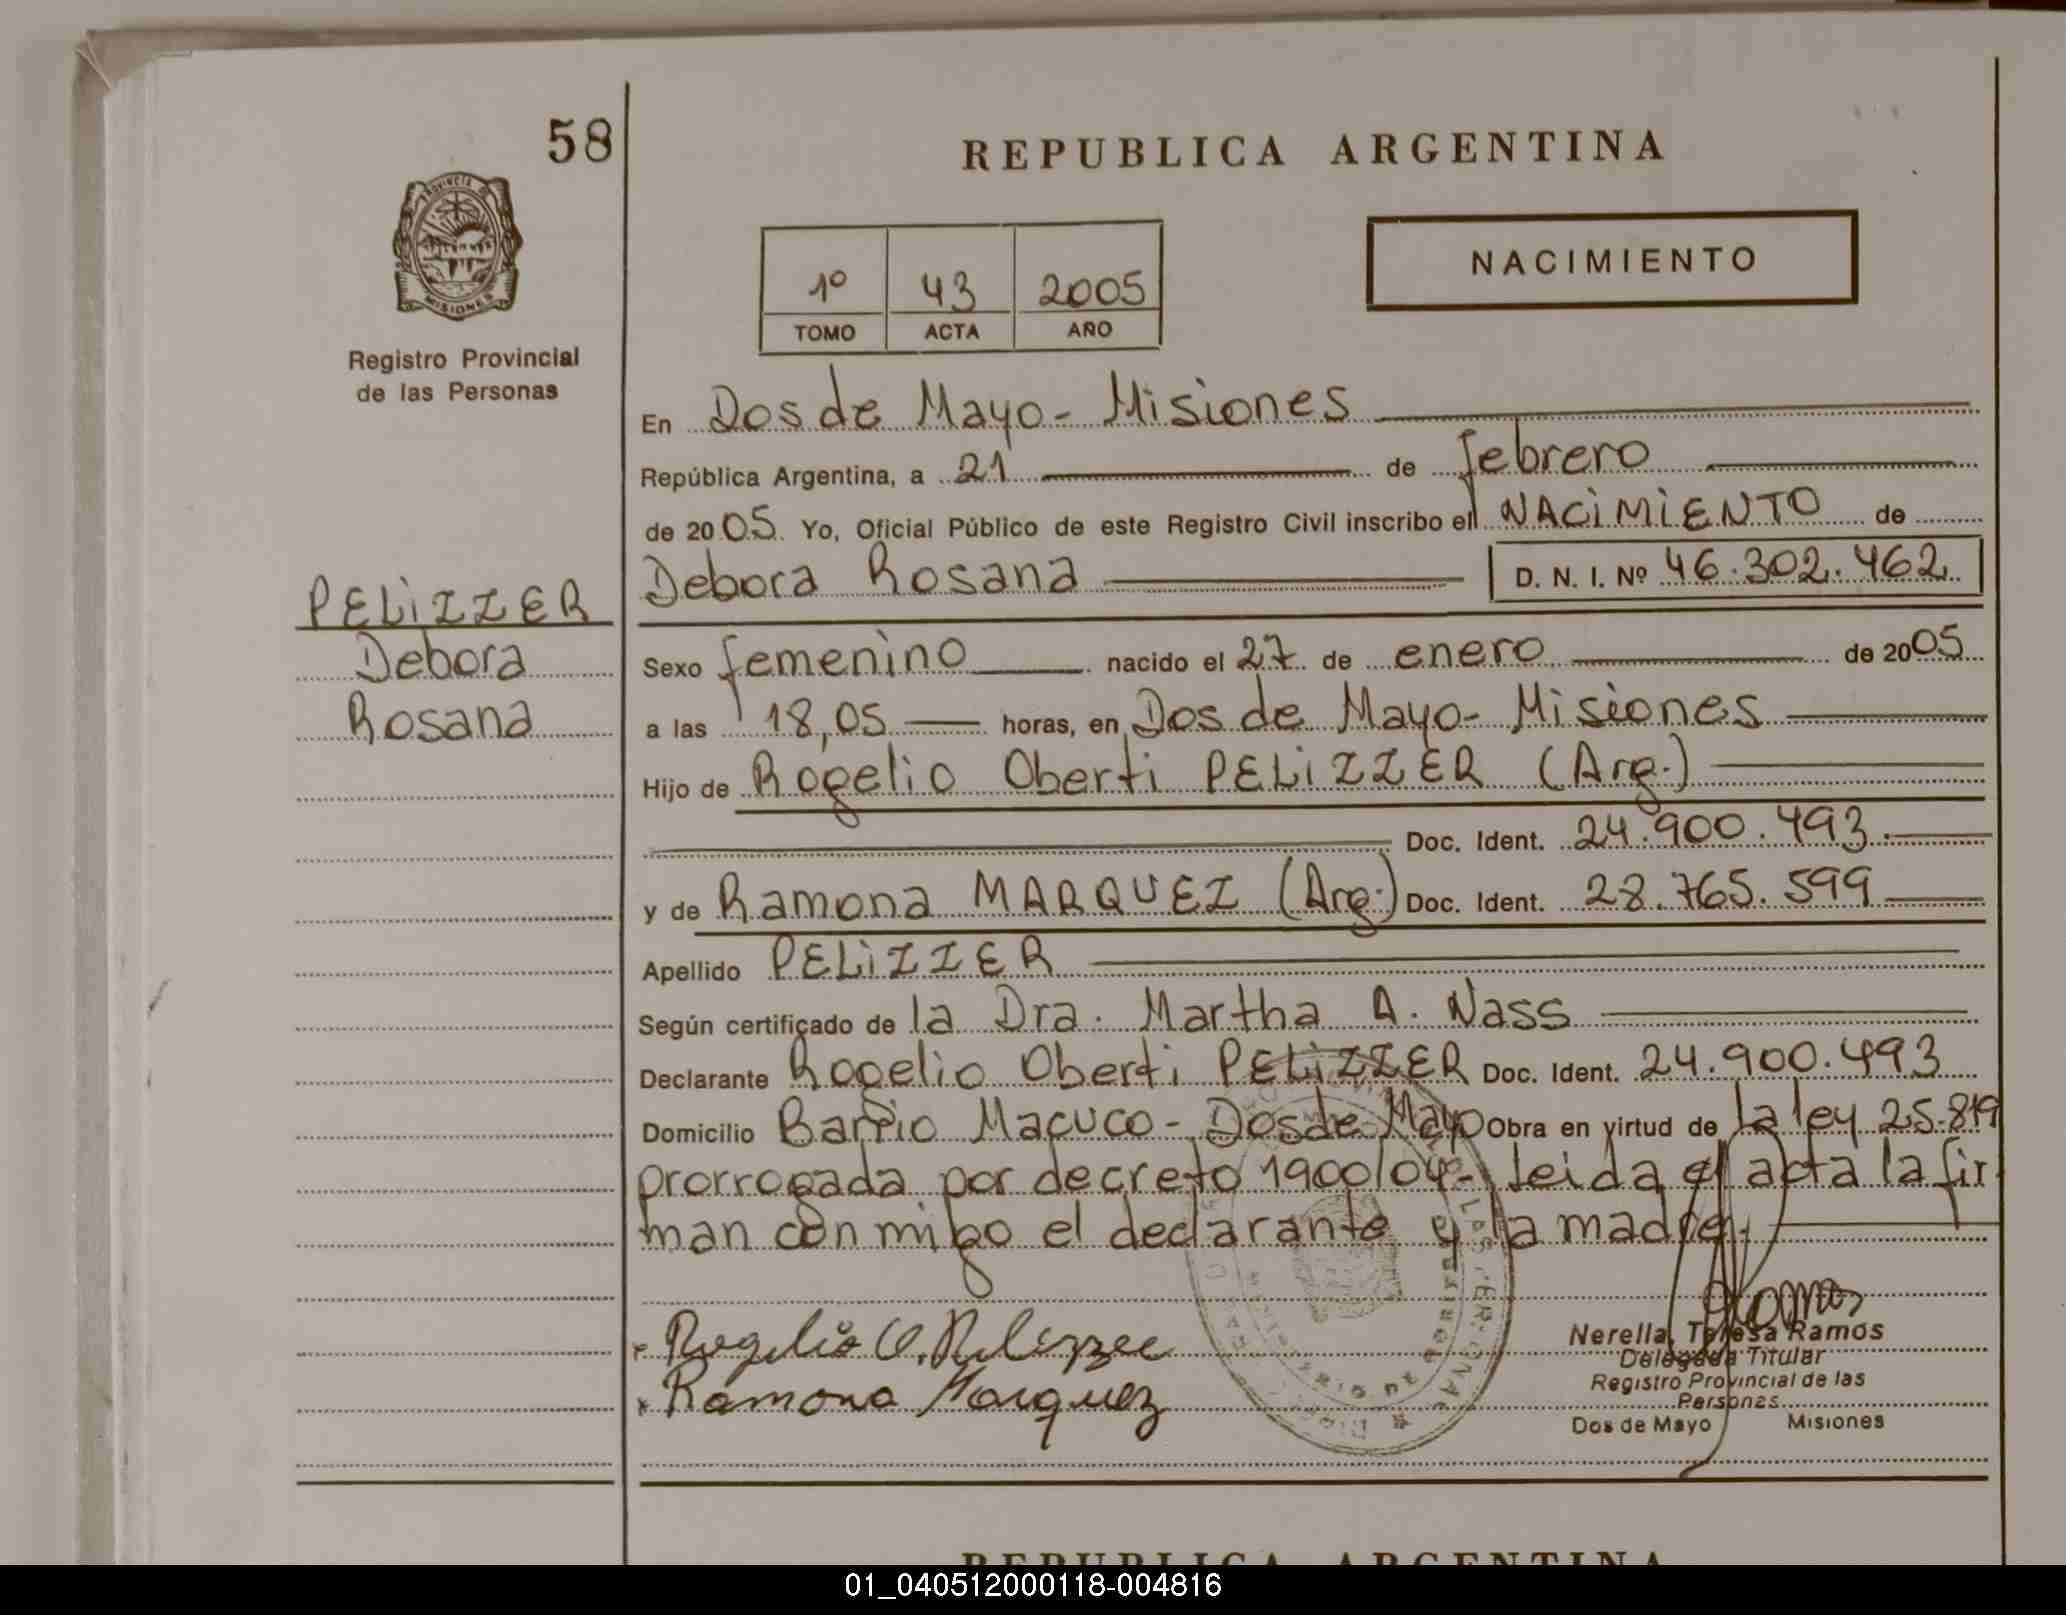 58
REPUBLICA ARGENTINA
PROVINCIA DE
MISIONES
NACIMIENTO
1º 43 2005
TOMO ACTA AÑO
Registro Provincial
de las Personas
En Dos de Mayo - Misiones
República Argentina, a 21 de febrero
de 2005. Yo, Oficial Público de este Registro Civil inscribo el NACIMIENTO de
Debora Rosana D. N. I. Nº 46.302.462
PELIZZER
Debora
Rosana
Sexo femenino nacido el 27 de enero de 2005
a las 18,05 horas, en Dos de Mayo - Misiones
Hijo de Rogelio Oberti PELIZZER (Arg.)
Doc. Ident. 24.900.493.
y de Ramona MARQUEZ (Arg.) Doc. Ident. 28.765.599
Apellido PELIZZER
Según certificado de la Dra. Martha A. Nass
Declarante Rogelio Oberti PELIZZER Doc. Ident. 24.900.493
Domicilio Barrio Macuco - Dos de Mayo Obra en virtud de la ley 25.819
prorrogada por decreto 1900/04 - leida el acta la fir
man conmigo el declarante y la madre.
Rogelio O. Pelizzer
Ramona Marquez
Ramos
Nerella Teresa Ramos
Delegada Titular
Registro Provincial de las
Personas
Dos de Mayo Misiones
MINISTERIO DE
REPUBLICA ARGENTINA
01_040512000118-004816